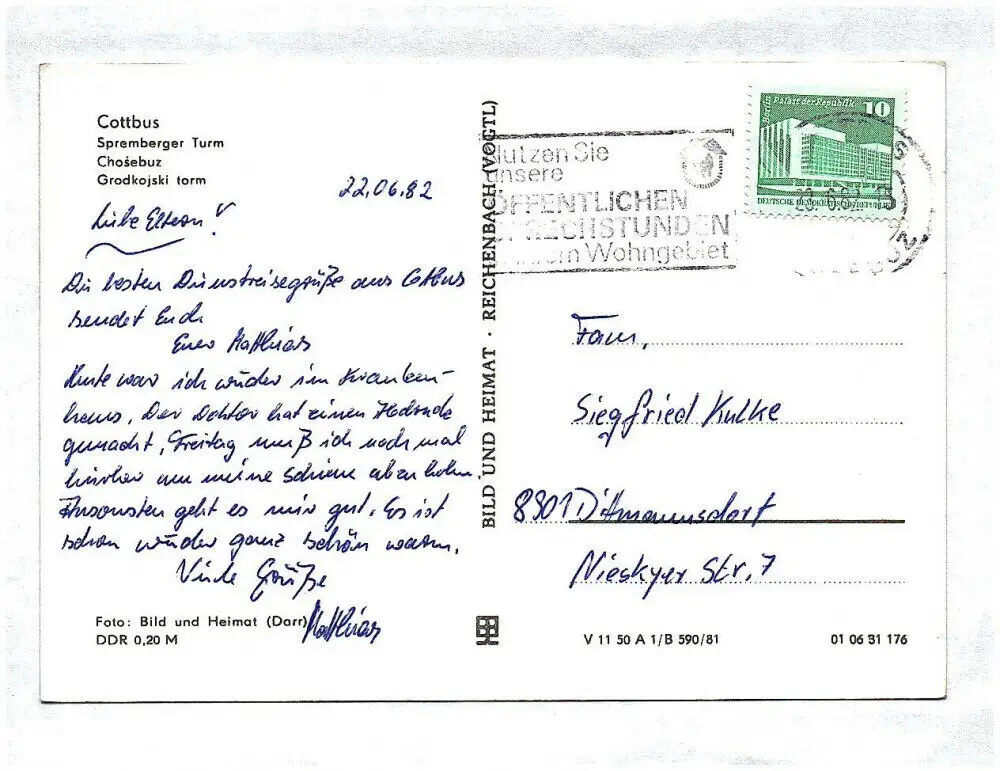 Cottbus
Spremberger Turm
Chośebuz
Grodkojski torm
22.06.82
Liebe Eltern!
Die besten Dienstreisegrüße aus Cottbus
sendet Euch
Euer Matthias
Heute war ich wieder im Kranken-
haus. Der Doktor hat einen
gemacht, Freitag muß ich noch mal
hin um meine Schiene abzuholen
Ansonsten geht es mir gut. Es ist
schon wieder ganz schön warm.
Viele Grüße
Matthias
Foto: Bild und Heimat (Darr)
DDR 0,20 M
BILD UND HEIMAT · REICHENBACH (VOGTL)
Nutzen Sie
unsere
ÖFFENTLICHEN
SPRECHSTUNDEN
Wohngebiet
Berlin Palast der Republik 10
DEUTSCHE DEMOKRATISCHE REPUBLIK
Fam.
Siegfried Kulke
8901 Dittmannsdorf
Nieskyer Str. 7
V 11 50 A 1/B 590/81
01 06 31 176